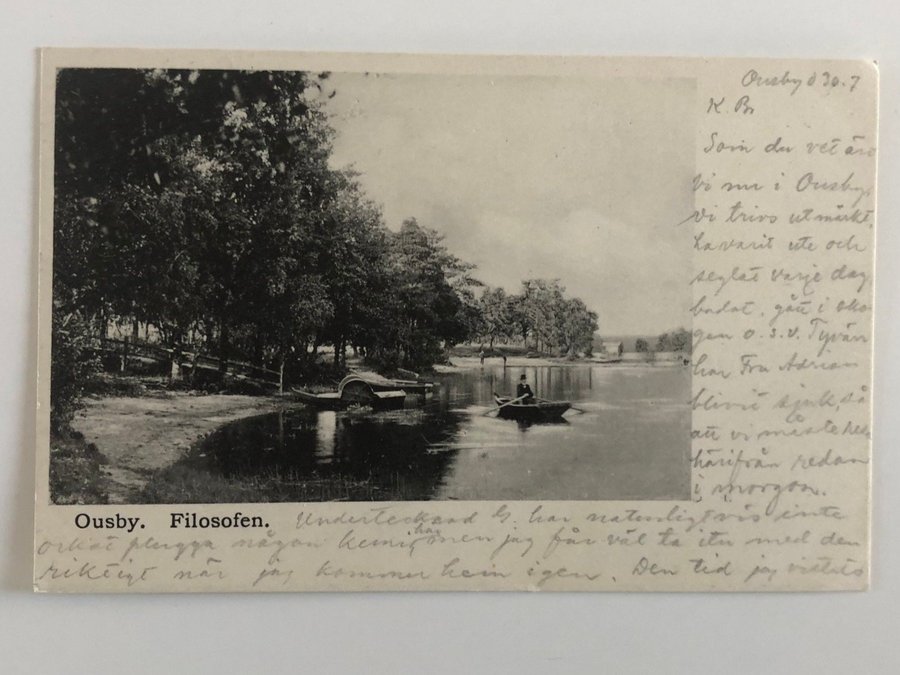 Ousby d 30. 7
K. Br
Som du vet äro
vi nu i Ousby,
vi trivs utmärkt,
ha varit ute och
seglat varje dag
badat, gått i sko-
gen o. s. v. Tyvärr
har Fru Adrian
blivit sjuk, så
att vi måste resa
härifrån redan
i morgon.
Ousby. Filosofen. Undertecknad G. har naturligtvis inte
orkat plugga någon kemi här, men jag får väl ta itu med den
riktigt när jag kommer hem igen. Den tid jag vistats